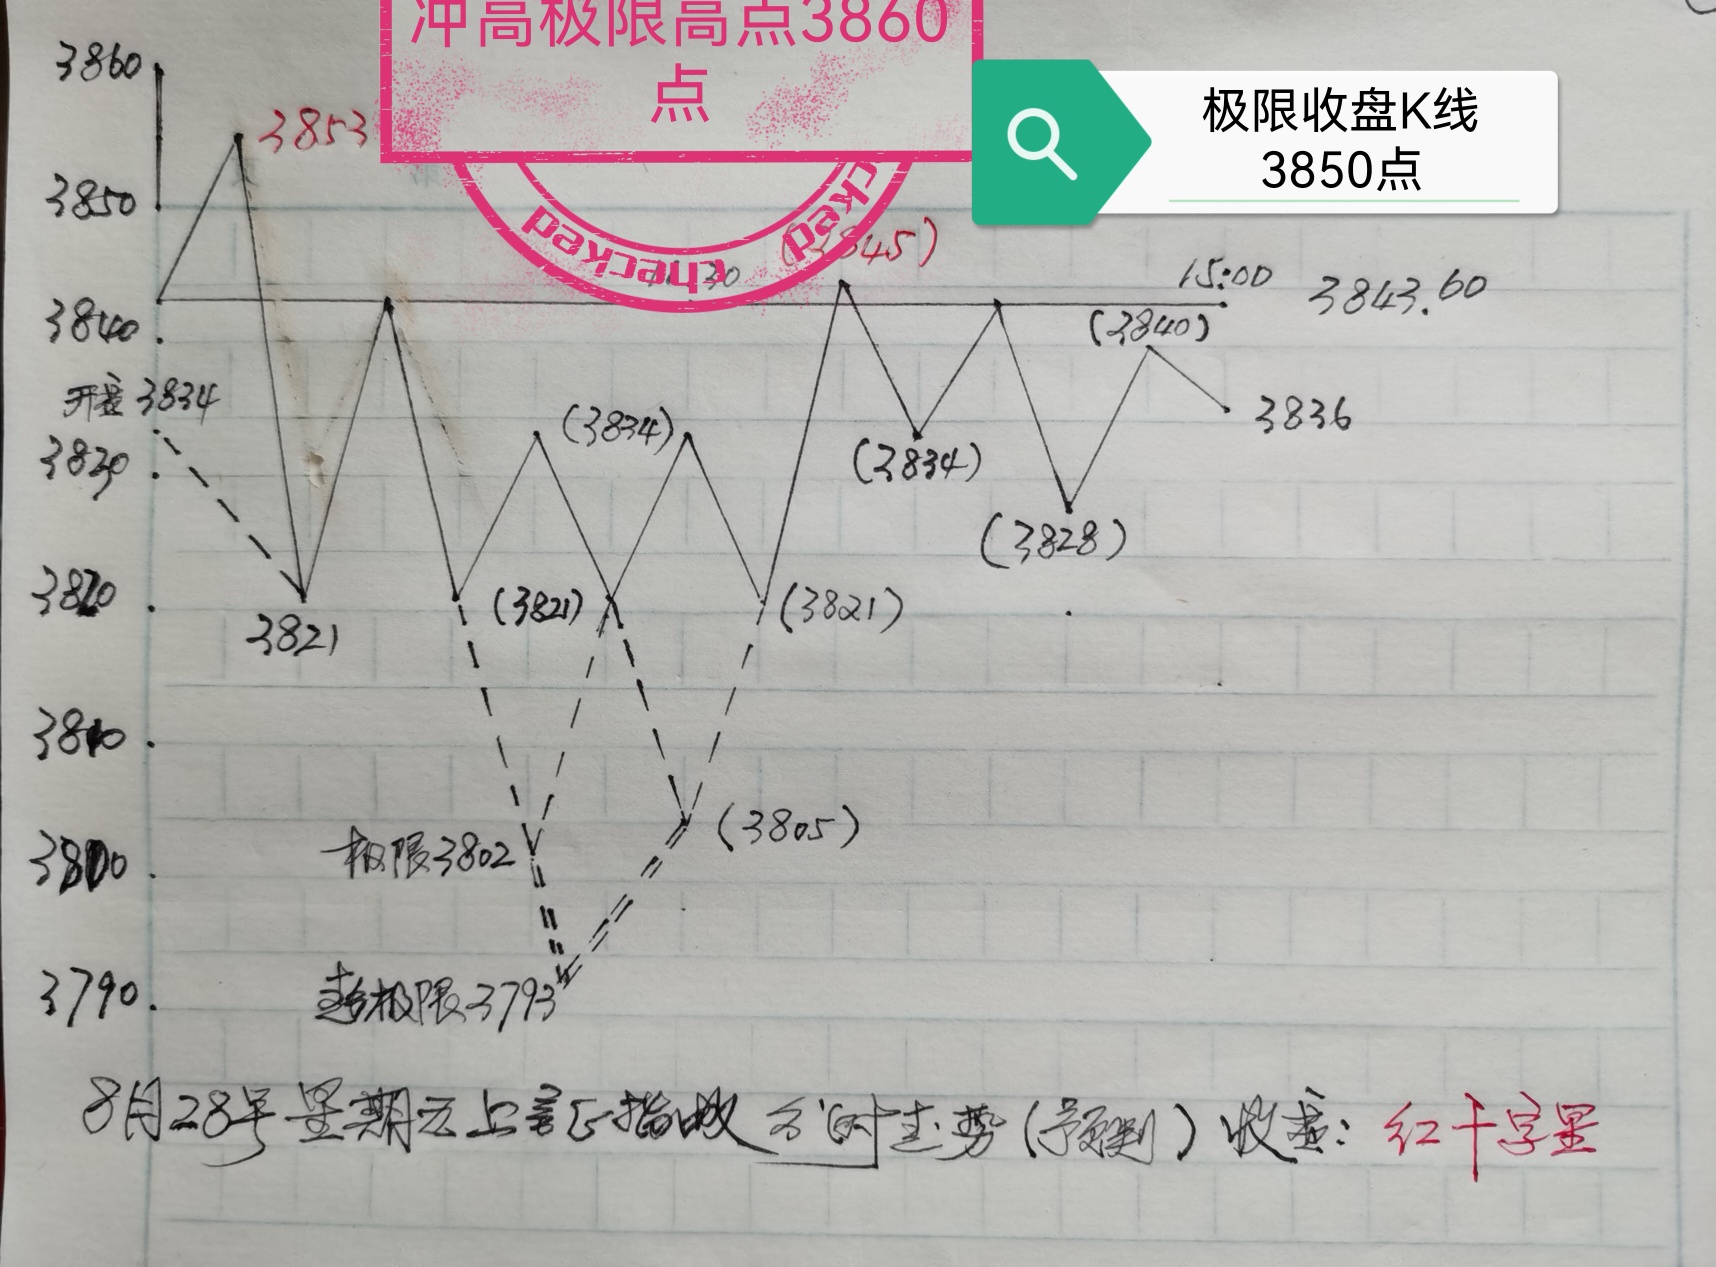 冲高极限高点3860
点
极限收盘K线
3850点
checked
checked
3860
3853
3850
15:00
3843.60
3840
(3840)
开盘3834
(3834)
3836
3830
(3834)
(3828)
3820
(3821)
(3821)
3821
3810
3800
极限3802
(3805)
3790
超极限3793
8月28号星期五上证指数分时走势(预判)收盘:红十字星